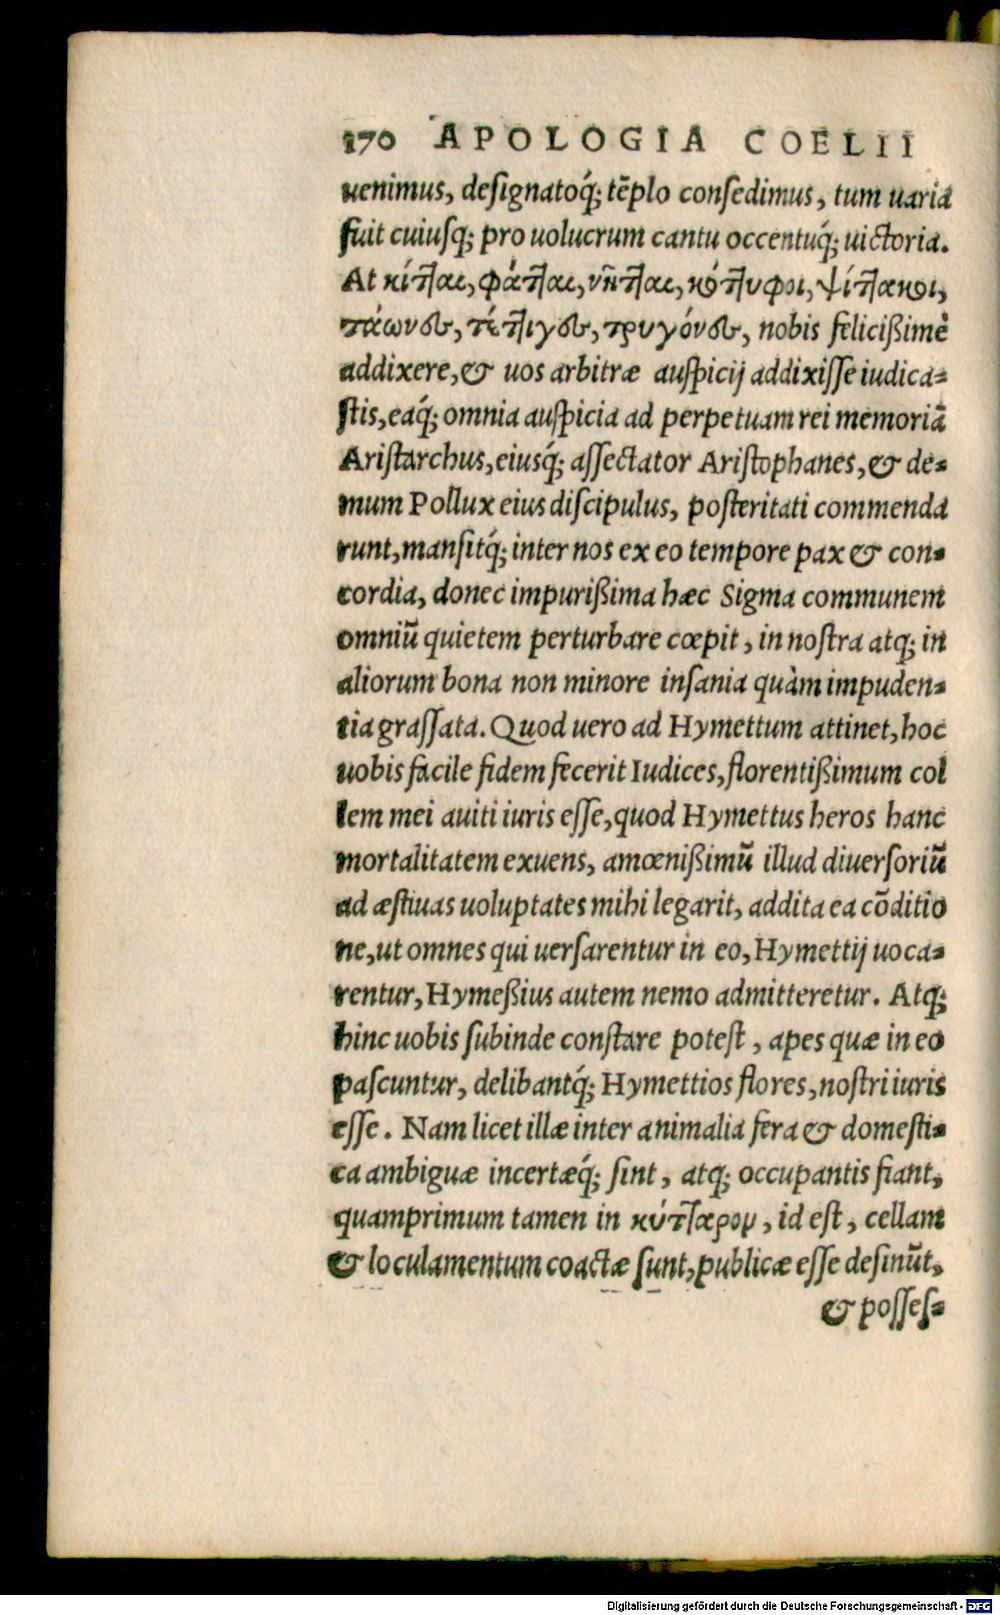 170 APOLOGIA COELII
uenimus, deſignatoq́; tẽplo conſedimus, tum uaria
fuit cuiuſq; pro uolucrum cantu occentuq́; uictoria.
At κίτ̃ται, φάτ̃ται, νῆτ̃ται, κότ̃τυφοι, ψίτ̃τακοι,
τάωνες, τέτ̃τιγες, τρυγόνες, nobis felicißimè
addixere, & uos arbitræ auſpicij addixiſſe iudica-
ſtis, eaq́; omnia auſpicia ad perpetuam rei memoriã
Ariſtarchus, eiusq́; aſſectator Ariſtophanes, & de-
mum Pollux eius diſcipulus, poſteritati commenda
runt, manſitq́; inter nos ex eo tempore pax & con-
cordia, donec impurißima hæc Sigma communem
omniũ quietem perturbare cœpit, in noſtra atq; in
aliorum bona non minore inſania quàm impuden-
tia graſſata. Quod uero ad Hymettum attinet, hoc
uobis facile fidem fecerit Iudices, florentißimum col
lem mei auiti iuris eſſe, quod Hymettus heros hanc
mortalitatem exuens, amœnißimũ illud diuerſoriũ
ad æſtiuas uoluptates mihi legarit, addita ea cõditio
ne, ut omnes qui uerſarentur in eo, Hymettij uoca-
rentur, Hymeßius autem nemo admitteretur. Atq;
hinc uobis ſubinde conſtare poteſt, apes quæ in eo
paſcuntur, delibantq́; Hymettios flores, noſtri iuris
eſſe. Nam licet illæ inter animalia fera & domeſti-
ca ambiguæ incertæq́; ſint, atq; occupantis fiant,
quamprimum tamen in κύτ̃ταρον, id eſt, cellam
& loculamentum coactæ ſunt, publicæ eſſe deſinũt,
& poſſeſ-
Digitalisierung gefördert durch die Deutsche Forschungsgemeinschaft - DFG